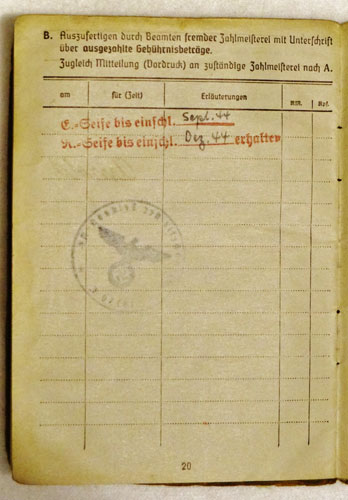 B. Auszufertigen durch Beamten fremder Zahlmeisterei mit Unterschrift
über ausgezahlte Gebührnisbeträge.
Zugleich Mitteilung (Vordruck) an zuständige Zahlmeisterei nach A.
am für (Zeit) Erläuterungen RM. Rpf.
E.-Seife bis einschl. Sept. 44
R.-Seife bis einschl. Dez. 44 erhalten
20